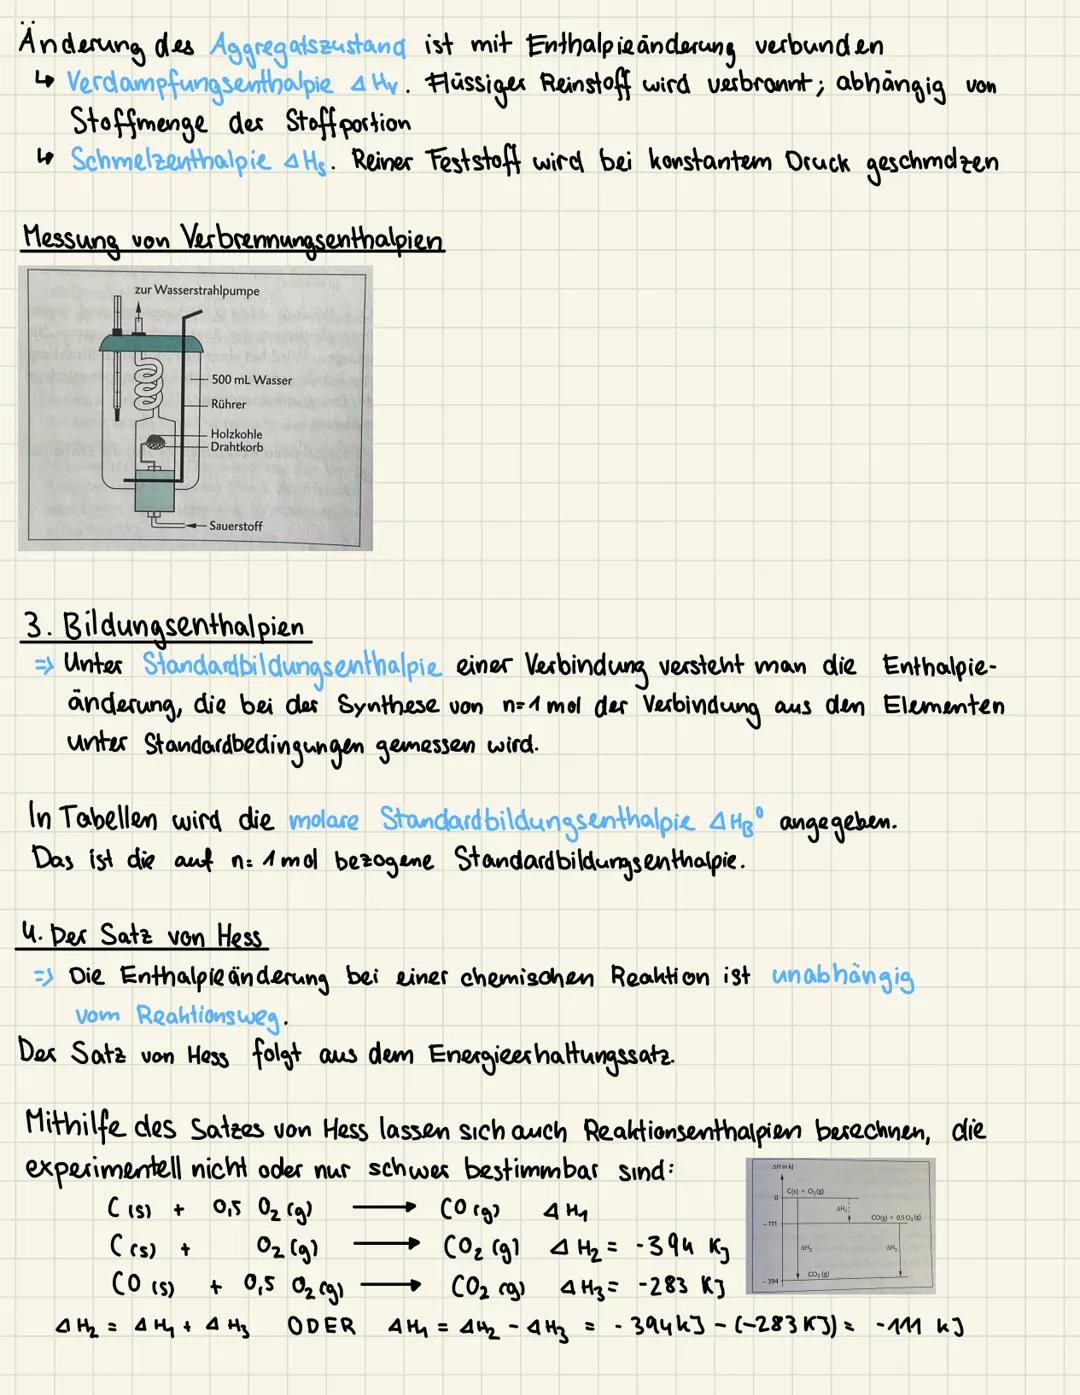 Änderung des Aggregatszustand ist mit Enthalpieänderung verbunden
↳ Verdampfungsenthalpie ΔHv. Flüssiger Reinstoff wird verbrannt; abhängig von
Stoffmenge der Stoffportion
↳ Schmelzenthalpie ΔHs. Reiner Feststoff wird bei konstantem Druck geschmolzen
Messung von Verbrennungsenthalpien
zur Wasserstrahlpumpe
500 mL Wasser
Rührer
Holzkohle
Drahtkorb
Sauerstoff
3. Bildungsenthalpien
=> Unter Standardbildungsenthalpie einer Verbindung versteht man die Enthalpie-
änderung, die bei der Synthese von n=1 mol der Verbindung aus den Elementen
unter Standardbedingungen gemessen wird.
In Tabellen wird die molare Standardbildungsenthalpie ΔHB° angegeben.
Das ist die auf n= 1 mol bezogene Standardbildungsenthalpie.
4. Der Satz von Hess
=> Die Enthalpieänderung bei einer chemischen Reaktion ist unabhängig
vom Reaktionsweg.
Der Satz von Hess folgt aus dem Energieerhaltungssatz.
Mithilfe des Satzes von Hess lassen sich auch Reaktionsenthalpien berechnen, die
experimentell nicht oder nur schwer bestimmbar sind:
C (s) + 0,5 O2 (g) → CO (g) ΔH1
C (s) + O2 (g) → CO2 (g) ΔH2 = -394 KJ
CO (s) + 0,5 O2 (g) → CO2 (g) ΔH3 = -283 KJ
ΔH2 = ΔH1 + ΔH3 ODER ΔH1 = ΔH2 - ΔH3 = -394 kJ - (-283 KJ) = -111 kJ
ΔH in kJ
C(s) + O2(g)
0
ΔH1
CO(g) + 0,5 O2(g)
-111
ΔH2
ΔH3
CO2(g)
-394